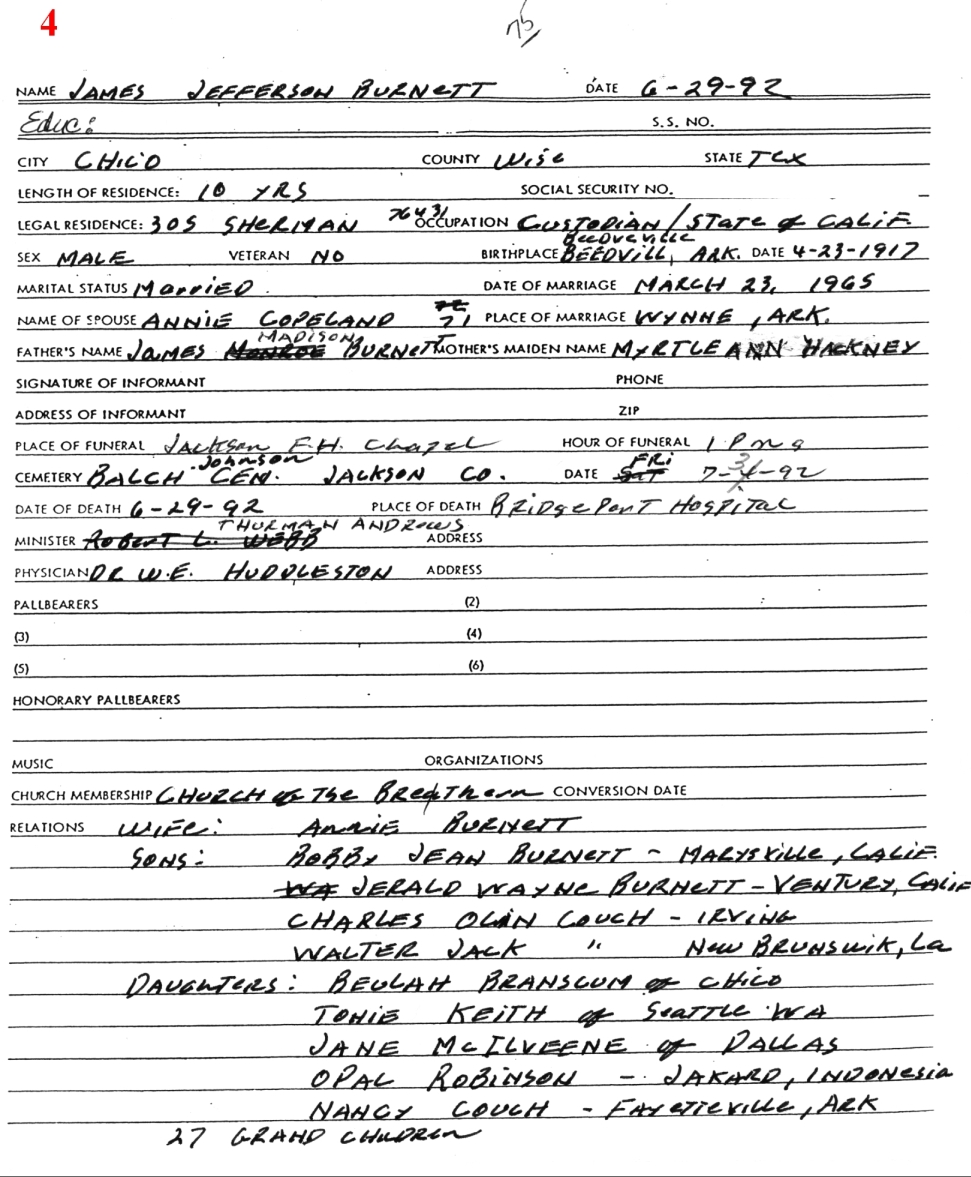 4
75
NAME JAMES JEFFERSON BURNETT DATE 6-29-92
Educ: S.S. NO.
CITY CHICO COUNTY Wise STATE TEX
LENGTH OF RESIDENCE: 10 YRS SOCIAL SECURITY NO.
LEGAL RESIDENCE: 305 SHERMAN 76431 OCCUPATION CUSTODIAN/STATE of CALIF.
Beedveville
SEX MALE VETERAN NO BIRTHPLACE BEEDVILL, ARK. DATE 4-23-1917
MARITAL STATUS MarriED DATE OF MARRIAGE MARCH 23, 1965
NAME OF SPOUSE ANNIE COPELAND 71 PLACE OF MARRIAGE WYNNE, ARK.
MADISON
FATHER'S NAME JAMES MONROE BURNETT MOTHER'S MAIDEN NAME MYRTLE ANN HACKNEY
SIGNATURE OF INFORMANT PHONE
ADDRESS OF INFORMANT ZIP
PLACE OF FUNERAL Jackson F.H. Chapel HOUR OF FUNERAL 1 P m
Johnson FRi 3
CEMETERY BALCH CEM. JACKSON CO. DATE SAT 7-4-92
DATE OF DEATH 6-29-92 PLACE OF DEATH BRIDgePORT HOSPITAL
THURMAN ANDREWS
MINISTER ROBERT L. WEBB ADDRESS
PHYSICIAN DR. W.E. HUDDLESTON ADDRESS
PALLBEARERS (2)
(3) (4)
(5) (6)
HONORARY PALLBEARERS
MUSIC ORGANIZATIONS
CHURCH MEMBERSHIP CHURCH of The Breathern CONVERSION DATE
RELATIONS WIFE: ANNIE BURNETT
SONS: BOBBY JEAN BURNETT - MARYSVILLE, CALIF.
WA JERALD WAYNE BURNETT - VENTURY, CALIF
CHARLES OLIN COUCH - IRVING
WALTER JACK " NEW BRUNSWIK, La
DAUGHTERS: BEULAH BRANSCUM of CHICO
TONIE KEITH of SEATTLE WA
JANE McILVEENE of DALLAS
OPAL ROBINSON - JAKARD, INDONESIA
NANCY COUCH - FAYETTEVILLE, ARK
27 GRAND CHILDREN